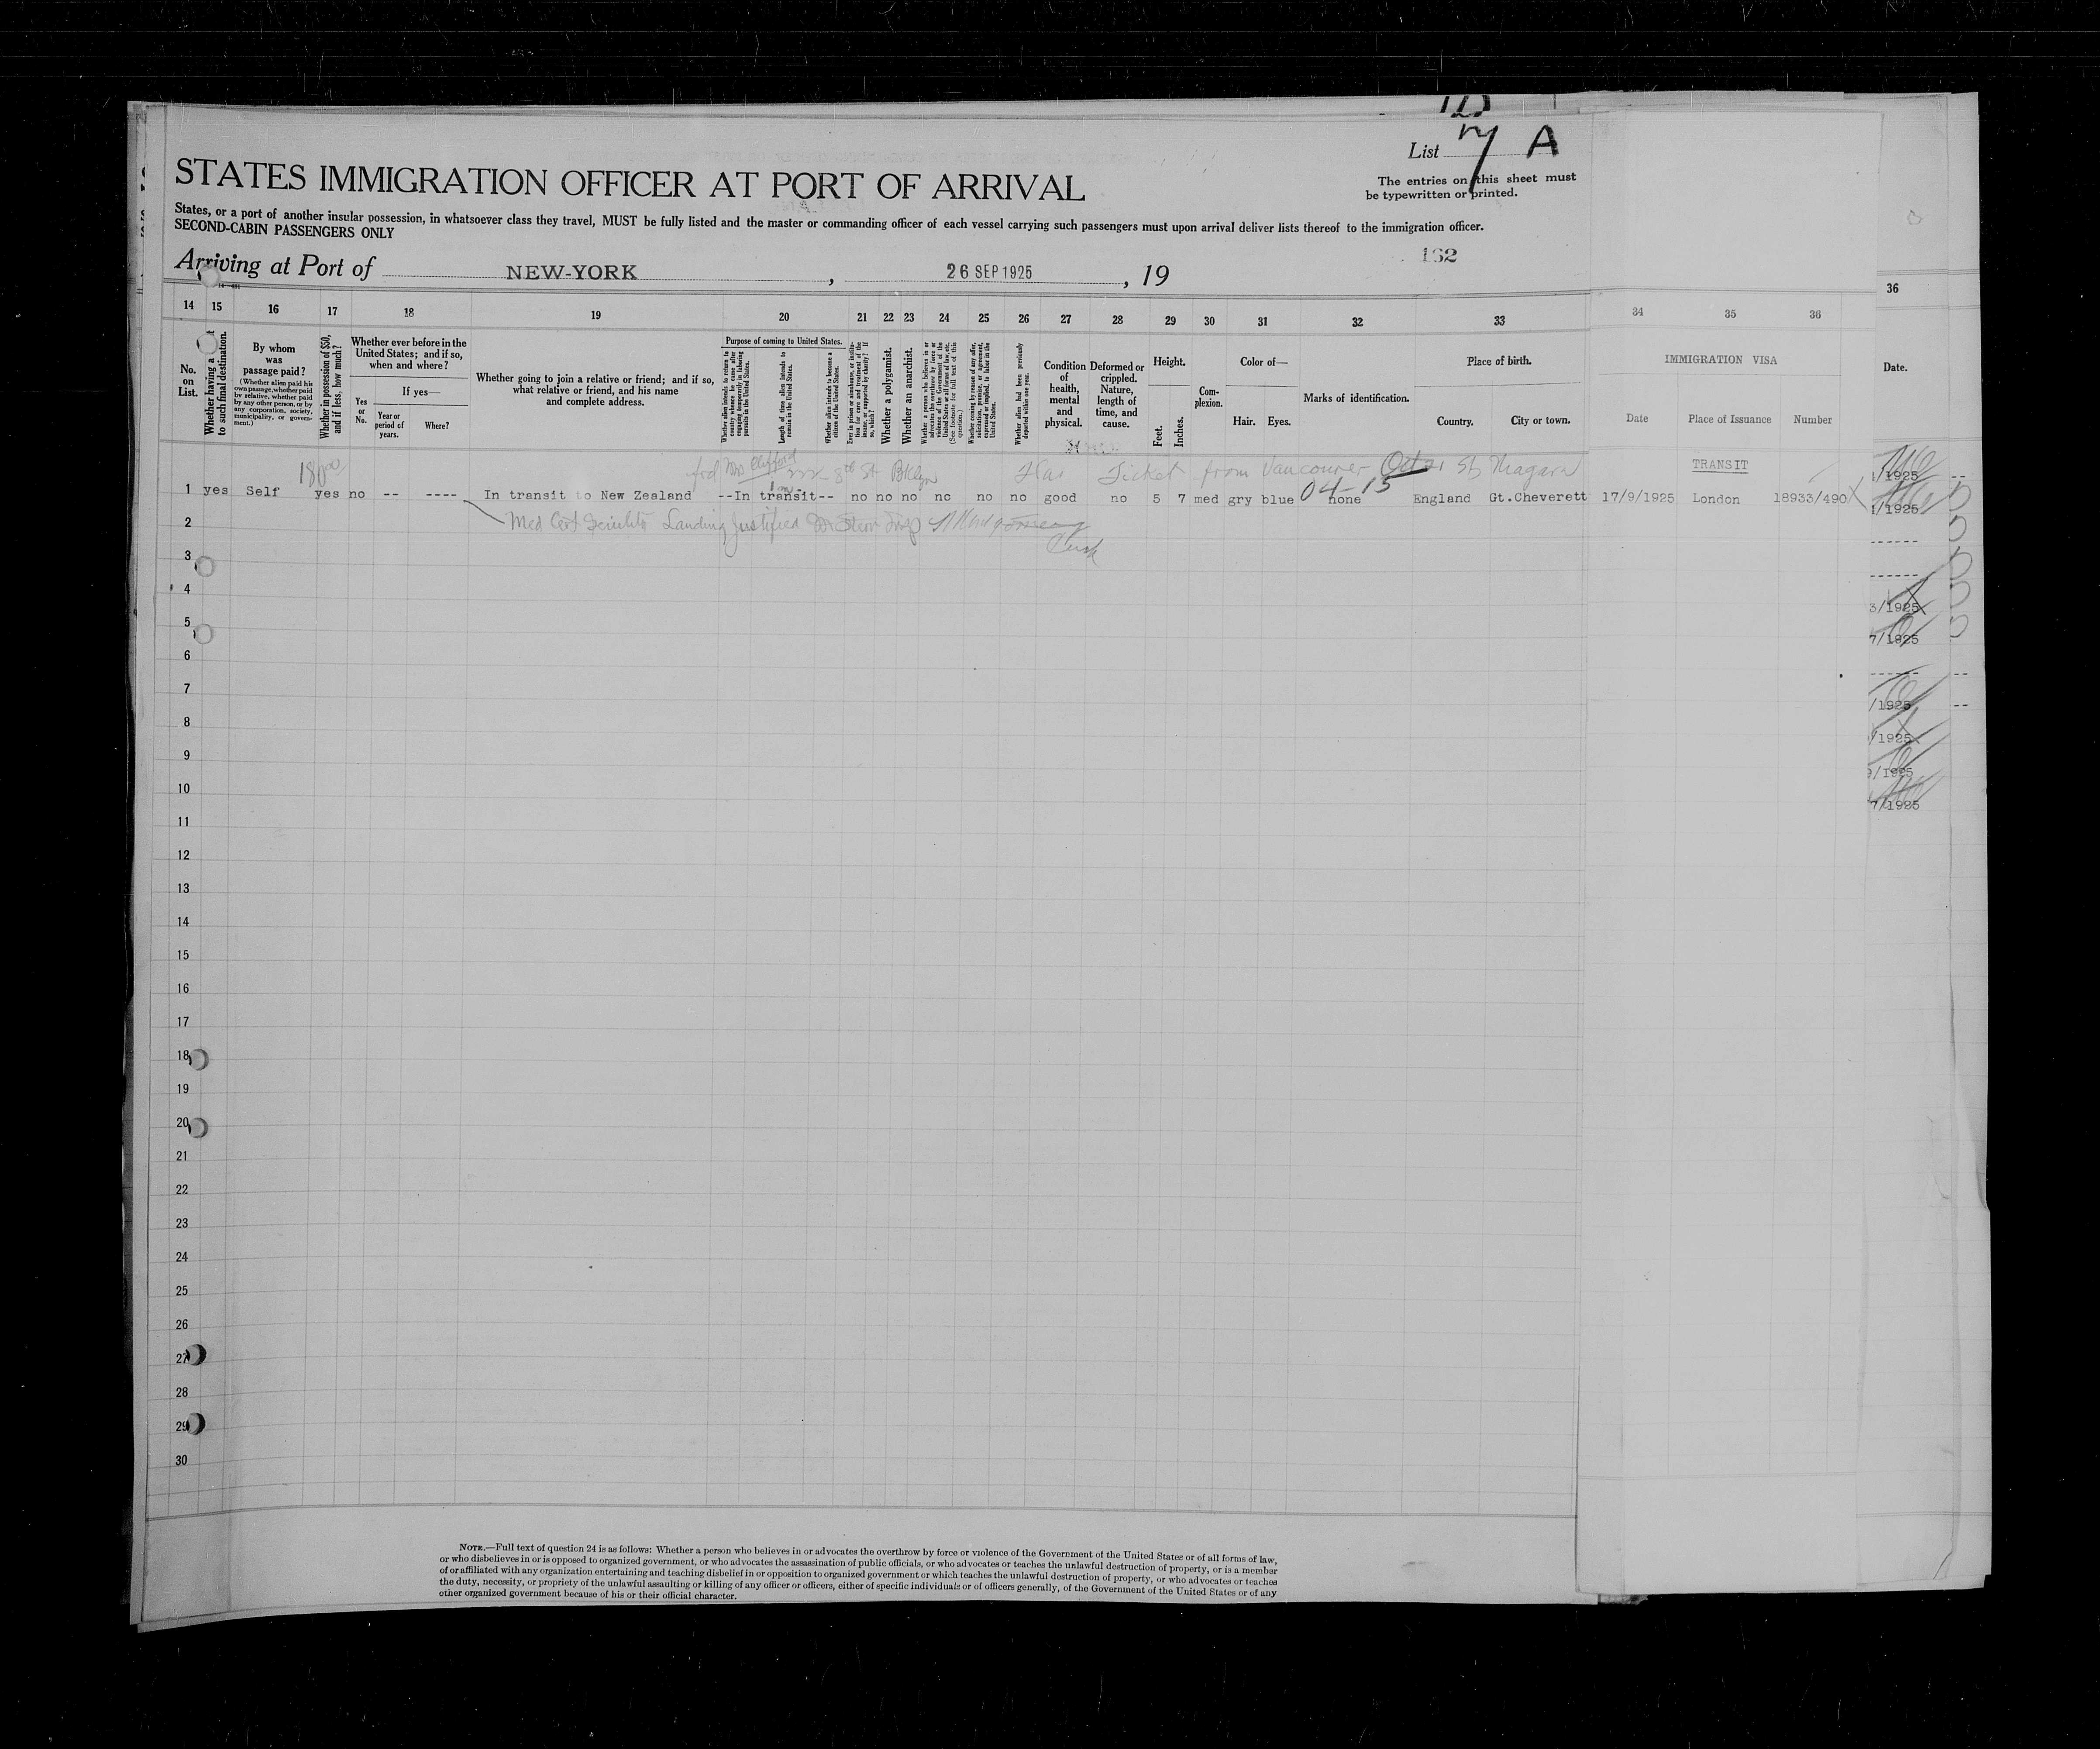 List 7 A
STATES IMMIGRATION OFFICER AT PORT OF ARRIVAL
The entries on this sheet must
be typewritten or printed.
States, or a port of another insular possession, in whatsoever class they travel, MUST be fully listed and the master or commanding officer of each vessel carrying such passengers must upon arrival deliver lists thereof to the immigration officer.
SECOND-CABIN PASSENGERS ONLY
132
Arriving at Port of NEW-YORK, 26 SEP 1925, 19
14 15 16 17 18 19 20 21 22 23 24 25 26 27 28 29 30 31 32 33 34 35 36
36
No. on List.
Whether having a to such final destination.
By whom was passage paid?
(Whether alien paid his own passage, whether paid by relative, whether paid by any other person, or by any corporation, society, municipality, or government.)
Whether in possession of $50, and if less, how much?
Whether ever before in the United States; and if so, when and where?
If yes—
Yes or No.
Year or period of years.
Where?
Whether going to join a relative or friend; and if so, what relative or friend, and his name and complete address.
Purpose of coming to United States.
Whether alien intends to return to country whence he came after engaging temporarily in laboring pursuits in the United States.
Length of time alien intends to remain in the United States.
Whether alien intends to become a citizen of the United States.
Ever in prison or almshouse, or institution for care and treatment of the insane, or supported by charity? If so, which?
Whether a polygamist.
Whether an anarchist.
Whether a person who believes in or advocates the overthrow by force or violence of the Government of the United States or all forms of law, etc. (See footnote for full text of this question.)
Whether coming by reason of any offer, solicitation, promise, or agreement, expressed or implied, to labor in the United States.
Whether alien had been previously deported within one year.
Condition of health, mental and physical.
Deformed or crippled. Nature, length of time, and cause.
Height.
Feet. Inches.
Complexion.
Color of—
Hair. Eyes.
Marks of identification.
Place of birth.
Country. City or town.
IMMIGRATION VISA
Date Place of Issuance Number
Date.
180 00 frd Mrs Clifford 8th St Bklyn Has Ticket from Vancouver Oct 21 SS Niagara TRANSIT
1 yes Self yes no -- ---- In transit to New Zealand --In transit-- no no no no no no good no 5 7 med gry blue 04-15 none England Gt.Cheverett 17/9/1925 London 18933/490
/1925
/1925
2 Med Cert Landing Justified Insp
Clerk
3
4
3/1925
5
7/1925
6
7
/1925
8
/1925
9
9/1925
10
7/1925
11
12
13
14
15
16
17
18
19
20
21
22
23
24
25
26
27
28
29
30
NOTE.—Full text of question 24 is as follows: Whether a person who believes in or advocates the overthrow by force or violence of the Government of the United States or of all forms of law,
or who disbelieves in or is opposed to organized government, or who advocates the assassination of public officials, or who advocates or teaches the unlawful destruction of property, or is a member
of or affiliated with any organization entertaining and teaching disbelief in or opposition to organized government or which teaches the unlawful destruction of property, or who advocates or teaches
the duty, necessity, or propriety of the unlawful assaulting or killing of any officer or officers, either of specific individuals or of officers generally, of the Government of the United States or of any
other organized government because of his or their official character.